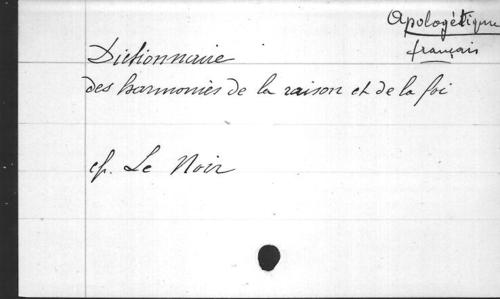 Apologétique
français
Dictionnaire
des harmonies de la raison et de la foi
cf. Le Noir